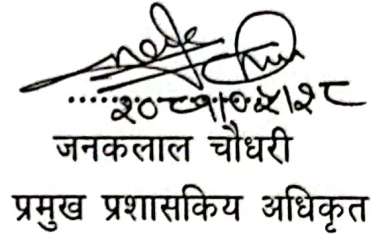 २०८१।०५।२८
जनकलाल चौधरी
प्रमुख प्रशासकिय अधिकृत